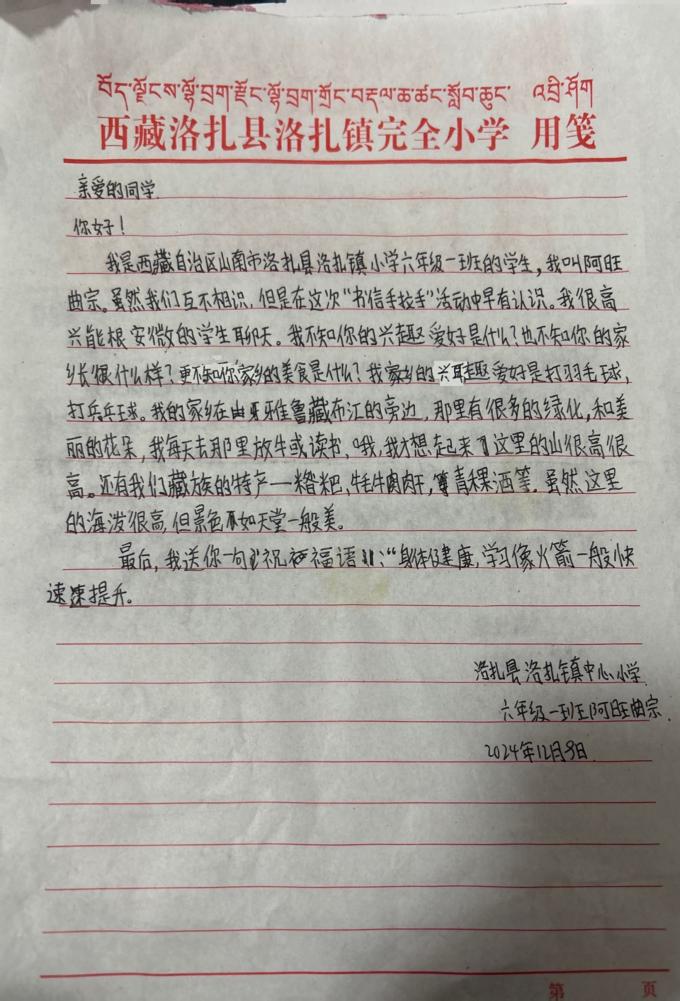 བོད་ལྗོངས་ལྷོ་བྲག་རྫོང་ལྷོ་བྲག་གྲོང་བརྡལ་ཆ་ཚང་སློབ་ཆུང་ འབྲི་ཤོག
西藏洛扎县洛扎镇完全小学 用笺
亲爱的同学
你好！
我是西藏自治区山南市洛扎县洛扎镇小学六年级一班的学生，我叫阿旺
曲宗。虽然我们互不相识，但是在这次“书信手拉手”活动中早有认识。我很高
兴能根安微的学生聊天。我不知你的兴趣爱好是什么？也不知你的家
乡长很什么样？更不知你家乡的美食是什么？我家乡的兴趣爱好是打羽毛球，
打乒乓球。我的家乡在雅鲁藏布江的旁边，那里有很多的绿化，和美
丽的花朵，我每天去那里放牛或读书，哦，我才想起来了这里的山很高很
高。还有我们藏族的特产一糌粑，牦牛肉干，青稞酒等。虽然这里
的海泼很高，但景色不如天堂一般美。
最后，我送你一句祝福语：“身体健康，学习像火箭一般快
速提升。
洛扎县洛扎镇中心小学
六年级一班阿旺曲宗.
2024年12月9日.
第 页